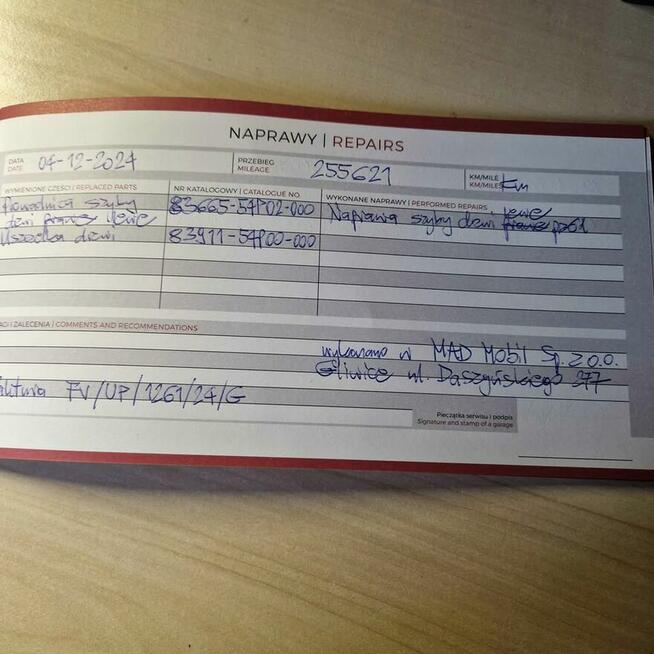 NAPRAWY | REPAIRS
DATA
DATE
04-12-2024
PRZEBIEG
MILEAGE
255621
KM/MILE
KM/MILES
Km
WYMIENIONE CZĘŚCI | REPLACED PARTS
NR KATALOGOWY | CATALOGUE NO
WYKONANE NAPRAWY | PERFORMED REPAIRS
Prowadnica szyby
83665-54P02-000
lewe
Naprawa szyby drzwi prawe
drzwi prawe lewe
Uszczelka drzwi
83911-54P00-000
I ZALECENIA | COMMENTS AND RECOMMENDATIONS
wykonano w MAD Mobil Sp. z o.o.
Gliwice ul. Daszyńskiego
aktura FV/UP/1261/24/G
Pieczątka serwisu i podpis
Signature and stamp of a garage